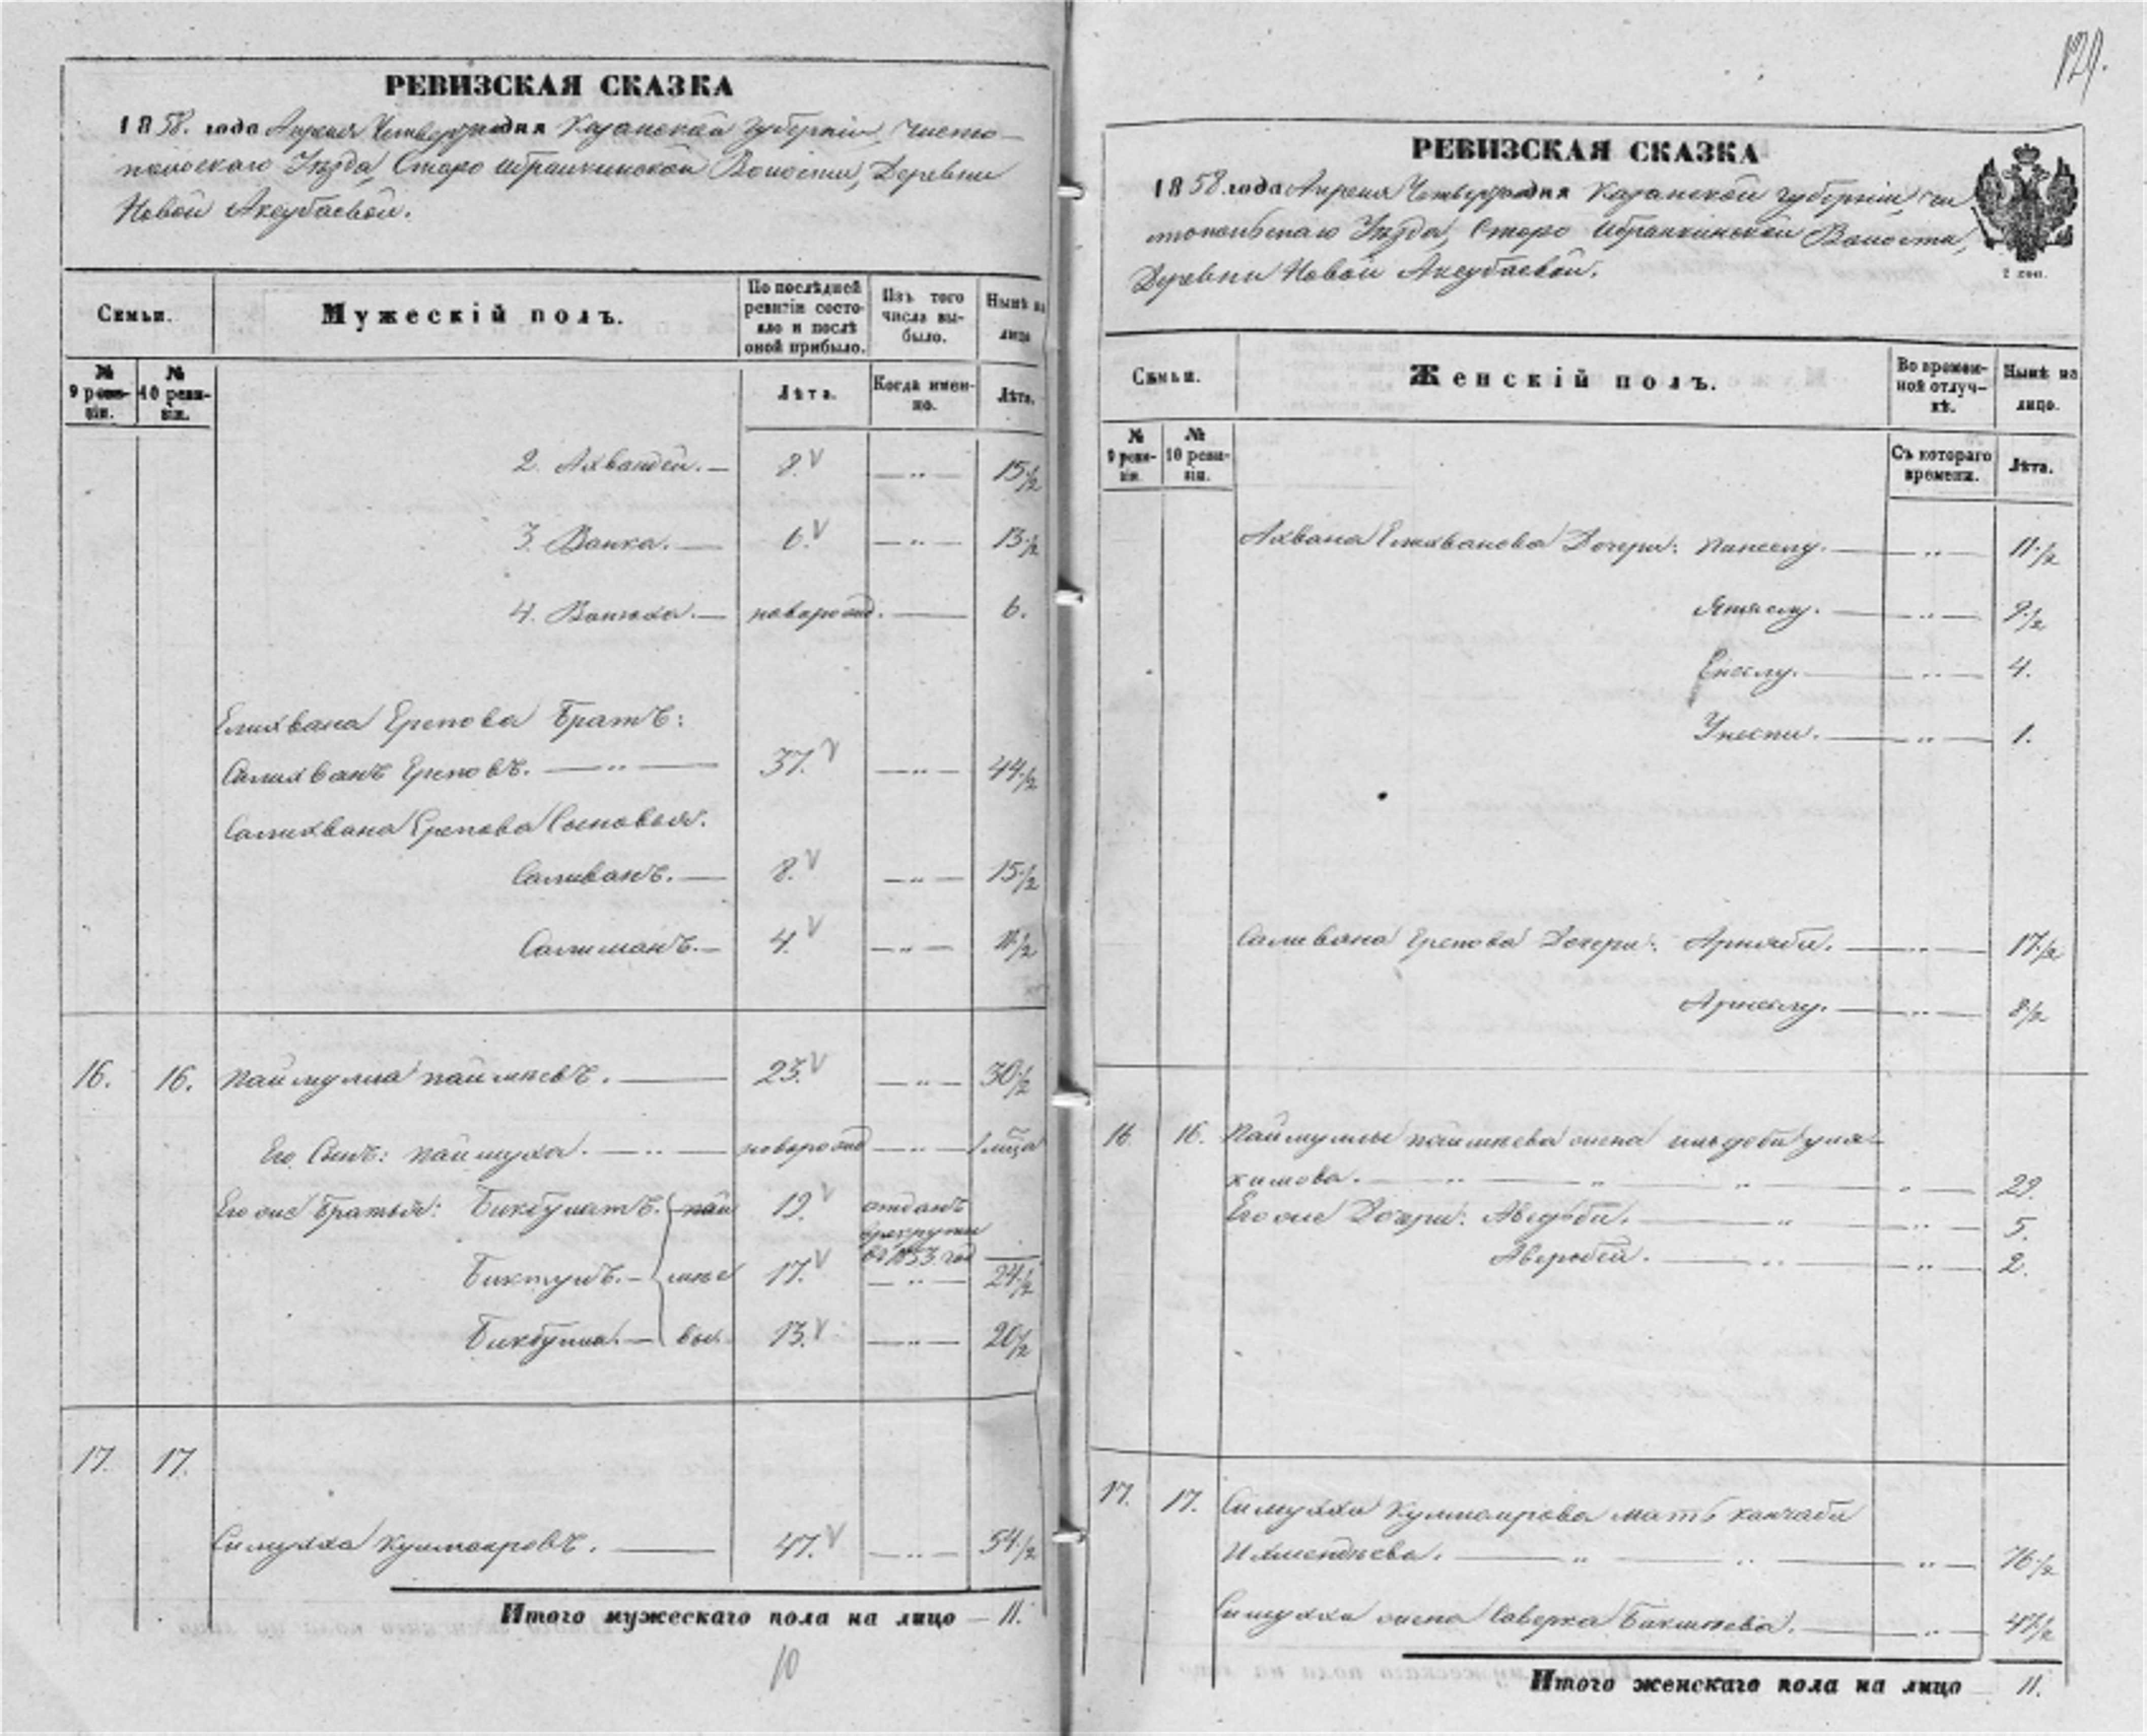 РЕВИЗСКАЯ СКАЗКА
1858. года Апреля Четвертодня Казанской губернии, Чисто-
польскаго Уѣзда, Старо Ибрайкинской Волости, Деревни
Новой Аксубаевой.
Семьи.
Мужескій полъ.
По послѣдней ревизіи состояло и послѣ оной прибыло.
Изъ того числа выбыло.
Нынѣ на лицо
№ 9 ревизіи.
№ 10 ревизіи.
Лѣта.
Когда именно.
Лѣта.
2. Ахвандей. — 8. — 15 1/2
3. Ванка. — 6. — 13 1/2
4. Ванюха. — новорожд. — 6.
Елихвана Ерепова Братъ:
Салихванъ Ереповъ. — 37. — 44 1/2
Салихвана Ерепова Сыновья.
Саливанъ. — 8. — 15 1/2
Салиманъ. — 4. — 11 1/2
16. 16. Паймулла Паймѣевъ. — 23. — 30 1/2
Его Сынъ: Паймуха. — новорожд — 1
Его же Братья: Бикбулатъ. 19. отданъ
в рекруты
въ 1853 год —
Биктушъ. — 17. — 24 1/2
Бикбулла. — 13. — 20 1/2
17. 17.
Симухха Кулмаяровъ. — 47. — 54 1/2
Итого мужескаго пола на лицо — 11.
10
129.
РЕВИЗСКАЯ СКАЗКА
1858. года Апреля Четвертодня Казанской губерніи, Чи
стопольскаго Уѣзда, Старо Ибрайкинской Волости,
Деревни Новой Аксубаевой.
2 коп.
Семьи.
Женскій полъ.
Во временной отлучкѣ.
Нынѣ на лицо.
№ 9 ревизіи.
№ 10 ревизіи.
Съ котораго времени.
Лѣта.
Ахвана Елихванова Дочери: Пинеслу. — 11 1/2
Ятяслу. — 9 1/2
Енеслу. — 4.
Унеспи. — 1.
Саливана Ерепова Дочери: Арняби. — 17 1/2
Арнеслу. — 8 1/2
16. 16. Паймуллы Паймѣева жена Ильдеби Уля-
химова. — 29.
Его же Дочери: Аведеби. — 5.
Аверебей. — 2.
17. 17. Симухха Кулмаярова мать Канчаби
Ишмендѣева. — 76 1/2
Симухха жена Саверка Бикмѣева. — 47 1/2
Итого женскаго пола на лицо 11.